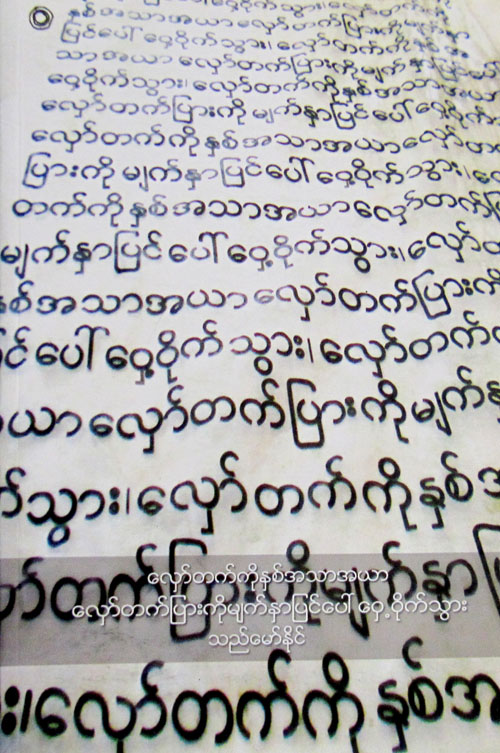 နှစ်အသာအယာလှော်တက်ပြားကိုမျက်နှာ
ပြင်ပေါ်ဝှေ့ဝိုက်သွား၊လှော်တက်ကိုနှစ်အ
သာအယာ လှော်တက်ပြားကိုမျက်နှာပြင်ပေါ်
ဝှေ့ဝိုက်သွား၊လှော်တက်ကိုနှစ်အသာအယာ
လှော်တက်ပြားကို မျက်နှာပြင်ပေါ် ဝှေ့ဝိုက်
လှော်တက်ကိုနှစ်အသာအယာလှော်တက်
ပြားကို မျက်နှာပြင်ပေါ် ဝှေ့ဝိုက်သွား၊
တက်ကိုနှစ်အသာအယာလှော်တက်
မျက်နှာပြင်ပေါ် ဝှေ့ဝိုက်သွား၊လှော်တ
နှစ်အသာအယာလှော်တက်ပြား
ပေါ် ဝှေ့ဝိုက်သွား၊လှော်တက်
ယာလှော်တက်ပြားကိုမျက်
သွား၊လှော်တက်ကိုနှစ်
တက်ပြားကိုမျက်နှာ
လှော်တက်ကိုနှစ်အသာအယာ
လှော်တက်ပြားကိုမျက်နှာပြင်ပေါ် ဝှေ့ဝိုက်သွား
သည်မော်နိုင်
၊လှော်တက်ကို နှစ်အ